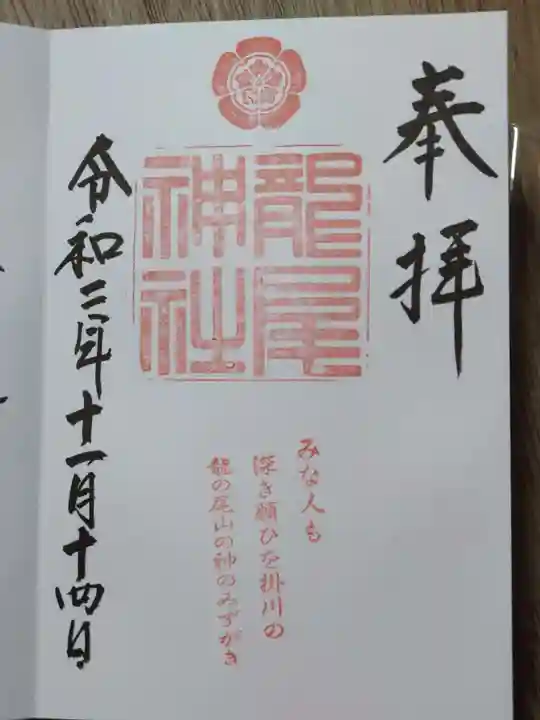 奉拝
龍尾
神社
みな人も
深き願ひを掛川の
龍の尾山の神のみずがき
令和三年十一月十四日